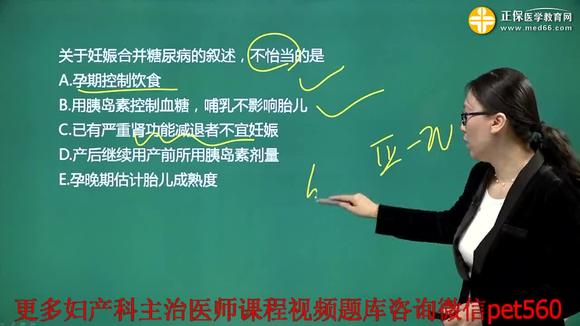 正保医学教育网
www.med66.com
关于妊娠合并糖尿病的叙述，不恰当的是
A.孕期控制饮食
B.用胰岛素控制血糖，哺乳不影响胎儿
C.已有严重肾功能减退者不宜妊娠
D.产后继续用产前所用胰岛素剂量
E.孕晚期估计胎儿成熟度
更多妇产科主治医师课程视频题库咨询微信pet560